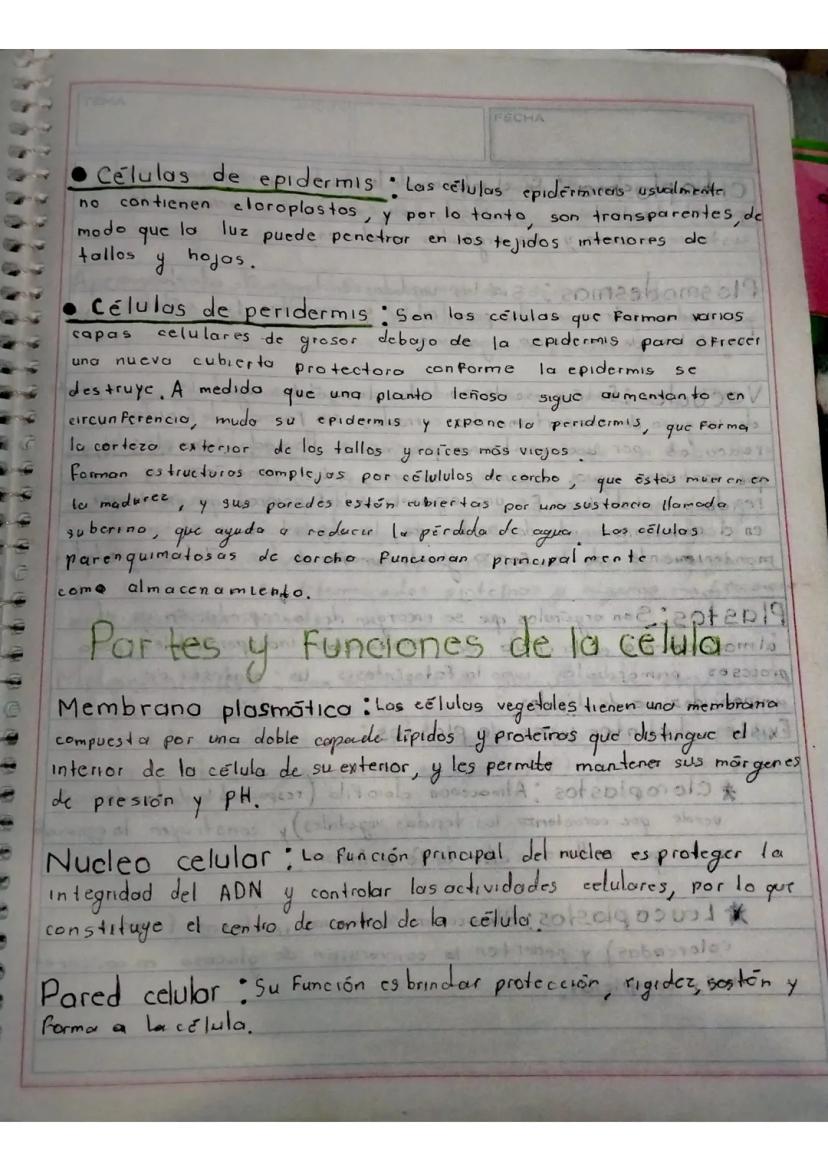 TEMA
FECHA
• Células de epidermis : Las células epidérmicas usualmente
no contienen cloroplastos, y por lo tanto, son transparentes, de
modo que la luz puede penetrar en los tejidos interiores de
tallos y hojas.
• Células de peridermis : Son las células que forman varias
capas celulares de grosor debajo de la epidermis para ofrecer
una nueva cubierta protectora conforme la epidermis se
destruye. A medida que una planta leñosa sigue aumentanto en
circunferencia, muda su epidermis y expone la peridermis, que forma
la corteza exterior de los tallos y raíces más viejos.
Forman estructuras complejas por célululos de corcho, que éstas mueren en
la madurez, y sus paredes están cubiertas por una sustancia llamada
suberina, que ayuda a reducir la pérdida de agua. Las células
parenquimatosas de corcho funcionan principalmente
como almacenamiento.
Partes y funciones de la célula
Membrana plasmática : Las células vegetales tienen una membrana
compuesta por una doble capa de lípidos y proteínas que distingue el
interior de la célula de su exterior, y les permite mantener sus márgenes
de presión y pH.
Nucleo celular : La función principal del nucleo es proteger la
integridad del ADN y controlar las actividades celulares, por lo que
constituye el centro de control de la célula.
Pared celular : Su función es brindar protección, rigidez, sostén y
forma a la célula.